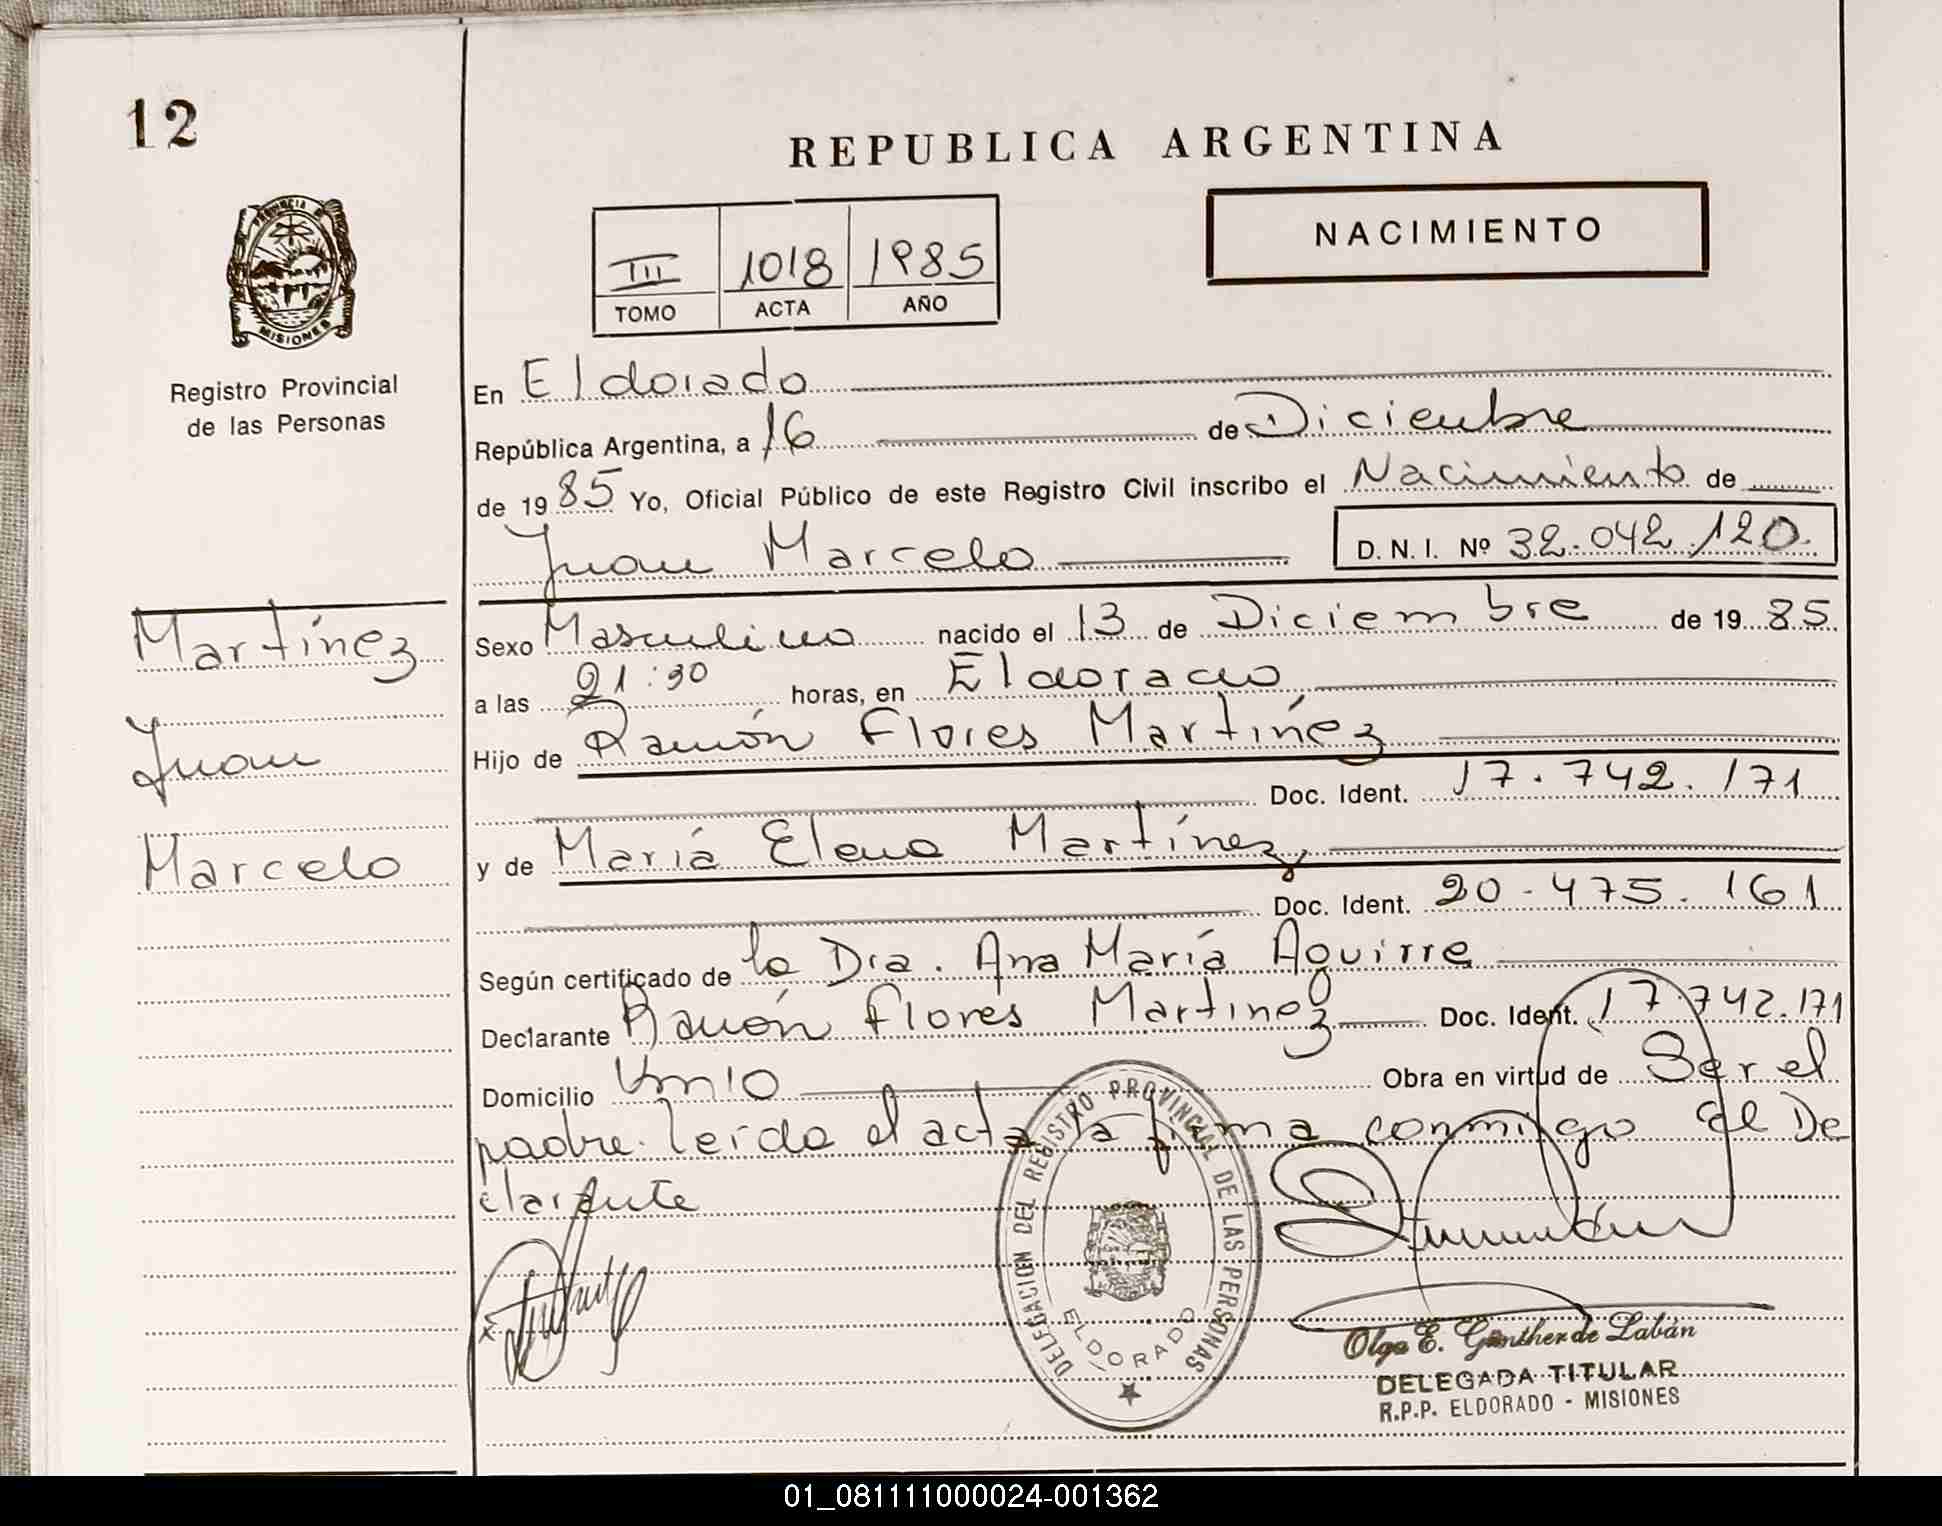 12
REPUBLICA ARGENTINA
NACIMIENTO
III 1018 1985
TOMO ACTA AÑO
PROVINCIA DE
MISIONES
Registro Provincial
de las Personas
En Eldorado
República Argentina, a 16 de Diciembre
de 1985 Yo, Oficial Público de este Registro Civil inscribo el Nacimiento de
Juan Marcelo D. N. I. Nº 32.042.120.
Martínez
Juan
Marcelo
Sexo Masculino nacido el 13 de Diciembre de 1985
a las 21:30 horas, en Eldorado
Hijo de Ramón Flores Martínez
Doc. Ident. 17.742.171
y de María Elena Martínez,
Doc. Ident. 20-475.161
Según certificado de la Dra. Ana María Aguirre
Declarante Ramón Flores Martinez Doc. Ident. 17.742.171
Domicilio Km10 Obra en virtud de Ser el
padre. leída el acta la firma conmigo el De
clarante
DELEGACION DEL REGISTRO PROVINCIAL DE LAS PERSONAS
ELDORADO
Olga E. Günther de Labán
DELEGADA TITULAR
R.P.P. ELDORADO - MISIONES
01_081111000024-001362